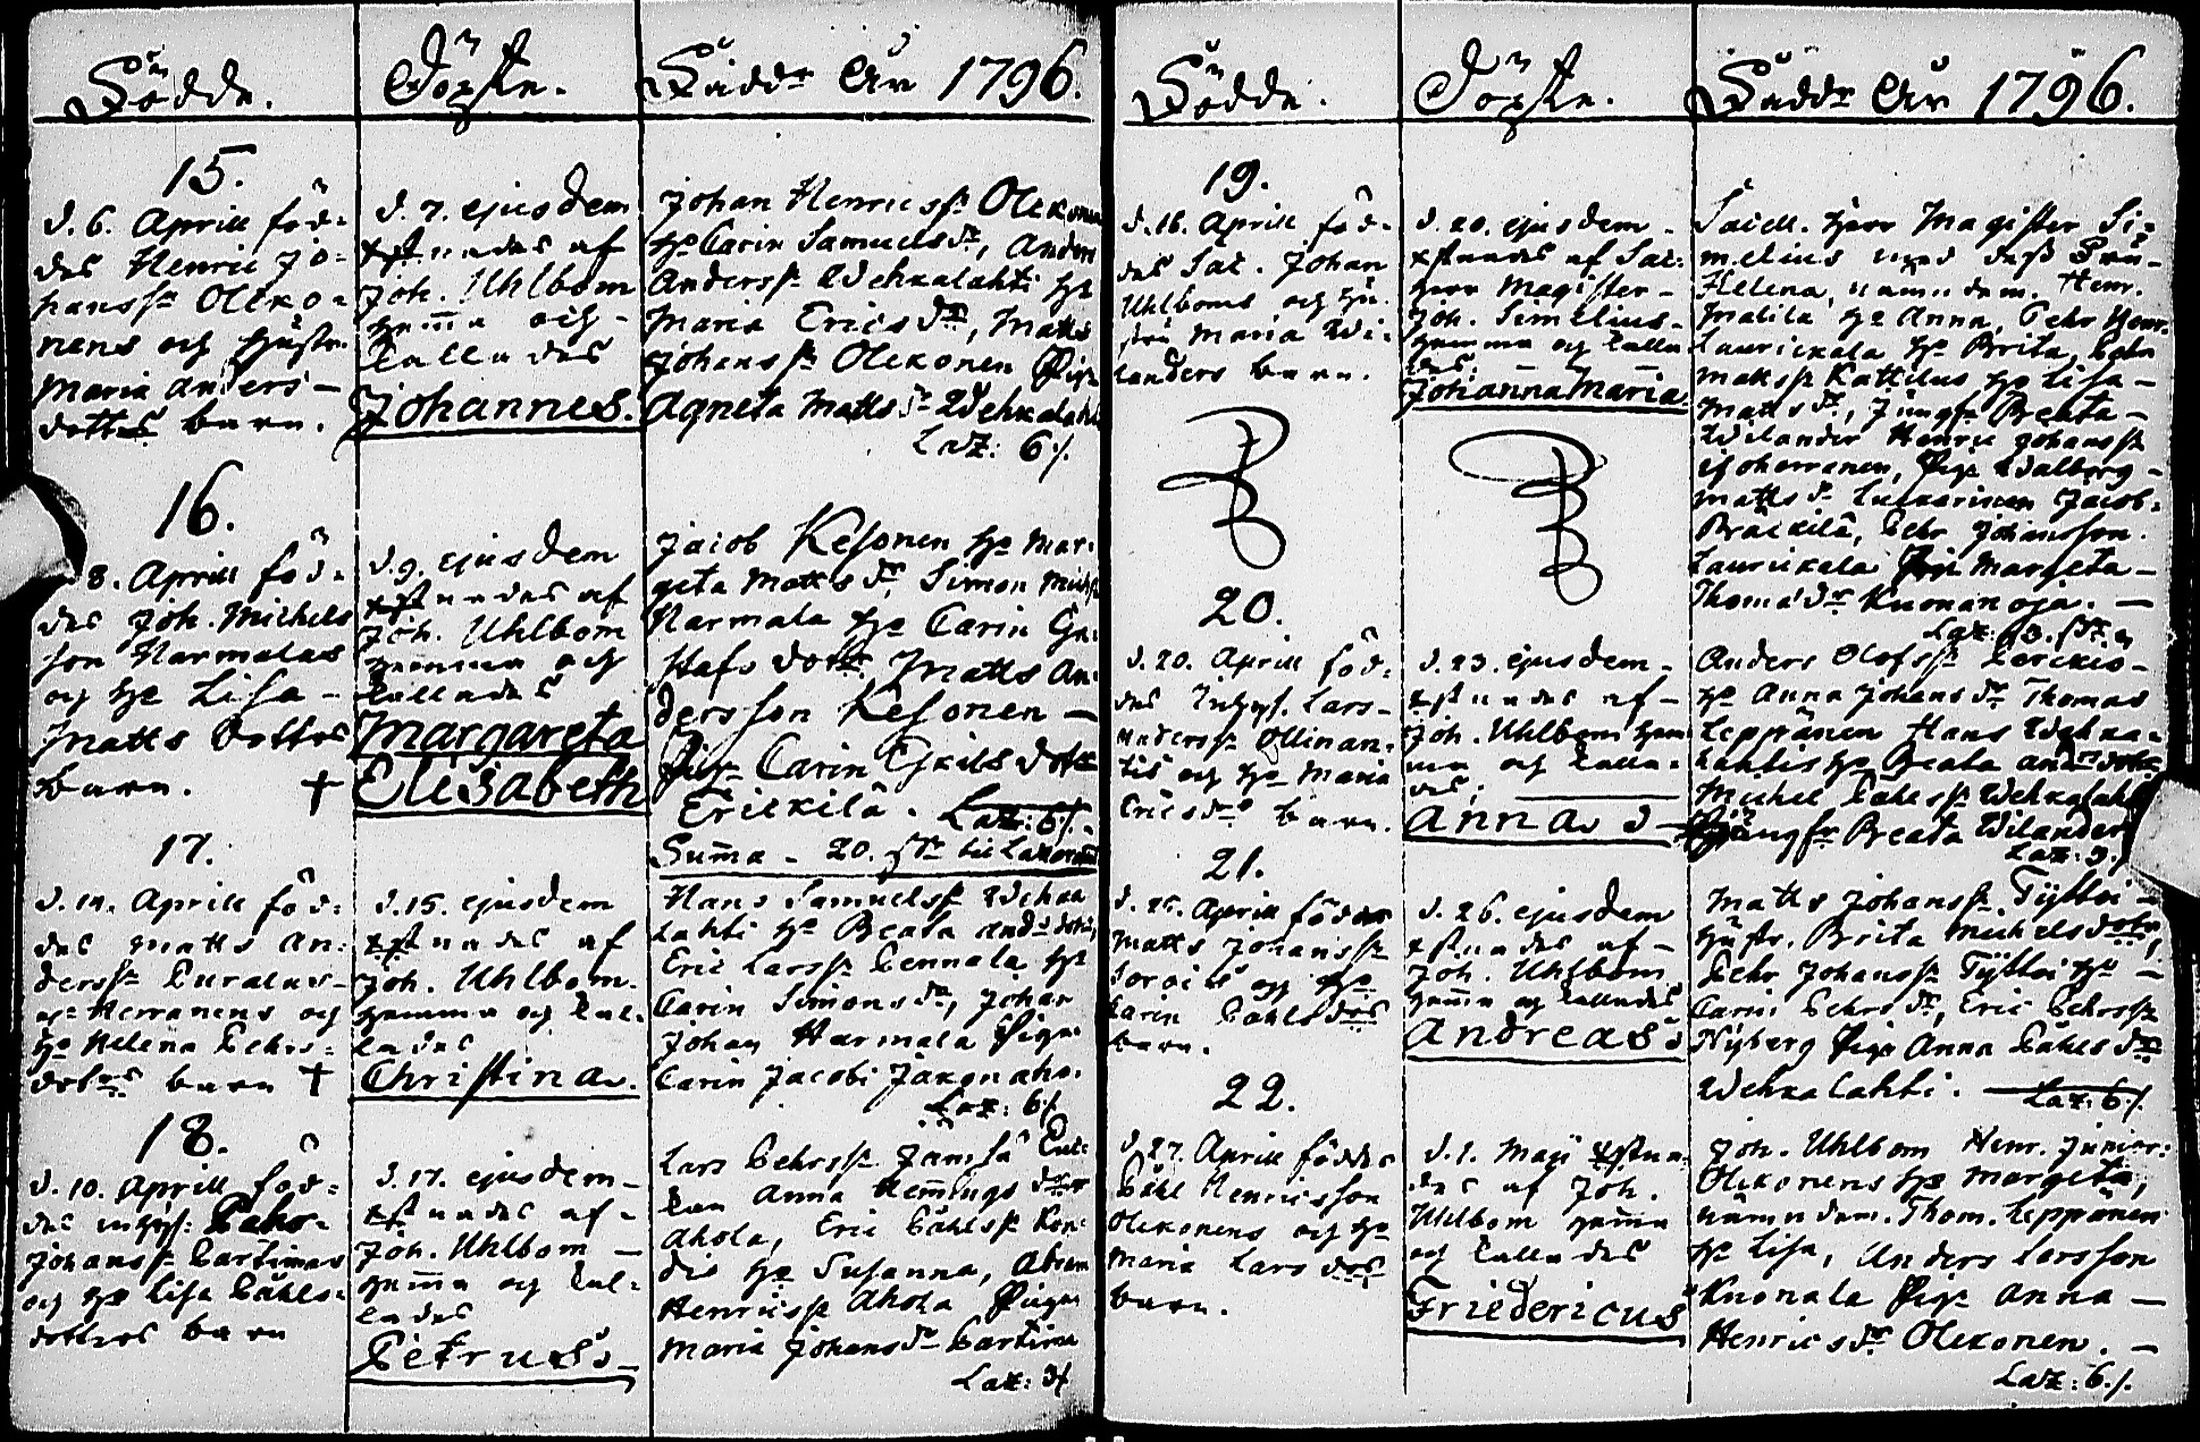 Födde.
Döpte.
Faddr År 1796.
15.
d. 6. Aprill föd=
des Henric Jo=
hanss Olcko=
nens och hustr.
Maria Anders-
dotters barn.
d. 7. ejusdem
xstnades af
Joh. Uhlbom
hemma och
kallades
Johannes.
Johan Henricss Olckonen
h: Carin Samuelsdr, Anders
Anderss Wehkalahti h:
Maria Ericsdr, Matts
Johanss Olckonen Pig:
Agneta Mattsdr Wehkalahti
Laz: 6 /.
16.
8. Aprill föd=
des Joh. Michels
son Harmalas
och h: Lisa
Matts Dotters
barn. †
d. 9. ejusdem
xstnades af
Joh. Uhlbom
hemma och
kallades
Margareta
Elisabeth
Jacob Kesonen h: Mar=
geta Mattsdr, Simon Michs
Harmala h: Carin Gu=
stafs dottr Matts An=
dersson Kesonen —
Pig: Carin Eskils dottr
Erickilä. Laz: 6 /.
Summa - 20. st. til Lazar
17.
d. 14. Aprill föd=
des Matts An=
derss
Herranens och
h: Helena Pehrs=
dotters barn †
d. 15. ejusdem
xstnades af
Joh. Uhlbom.
hemma og kal=
lades
Christina.
Hans Samuelss Wehka
lahti h: Beata And: dotr,
Eric Larss Pennala h:
Carin Simonsdr, Johan
Johan Harmala Pigan
Carin Jacobi Jakonaho.
Laz: 6 /.
18.
d. 10. Aprill föd=
des inhys: Påhr
Johanss Partimas
och h: Lisa Påhls=
dotters barn
d. 17. ejusdem
xstnades af
Joh. Uhlbom —
hemma og kal=
lades
Petrus.
Lars Pehrss Jämsä Ene=
kan Anna Hemmings dotr
Ahola, Eric Påhlss Kon=
dis h: Susanna, Abram
Henricss Ahola Pigan
Maria Johansdr Partima
Laz: 3 /
Födde.
Döpte.
Faddr År 1796.
19.
d. 16. Aprill föd=
des Sac. Johan
Uhlboms och hu=
stru Maria Wi=
landers barn.
d. 20. ejusdem
xstnades af Sac:
herr Magister
Joh. Simelius
hemma og kalla
des:
Johanna Maria.
Sacell. herr Magister Si=
melius med dess Fru
Helena, nämndem. Henr.
Matila h: Anna, Pehr Henr.
Laurickala h: Brita, Pehr
Mattss Kattilus h: Lisa
Mattsdr, Jungfr Beata
Wilander Henric Johanss
Isherranen, Pig: Walborg
Mattsdr Jacob
Bräckilä, Pehr Johansson.
Laurickala Pig: Margeta
Thomædr Kuonanoja. —
20.
d. 20. Aprill föd=
des Inhys. Lars
Anderss Ollinan=
tis och h: Maria
Ericsdrs barn.
d. 23. ejusdem
xstnades af
Joh. Uhlbom hem
ma og kalla=
des:
Anna.
Anders Olofss Perckiö
h: Anna Johansdr Thomas
Leppänen Hans Wehka=
lahtis h: Beata And: dotr
Michel Påhlss Wehkalahti
Jungfr Beata Wilander
Laz: 9. /
21.
d. 25. Aprill föddes
Matts Johanss
Sorois og h:
Carin Påhlsdrs
barn.
d. 26. ejusdem
xstnades af
Joh. Uhlbom
hemma og kallades
Andreas.
Matts Johanss Tyttöi
hustr. Brita Michelsdotr,
Pehr Johanss Tyttöi h: —
Carin Pehrsdr, Eric Pehrss
Nyberg Pig: Anna Påhlsdr
Wehkalahti. — Laz: 6 /.
22.
d. 27. Aprill föddes
Påhl Henricsson
Olckonens och h:
Maria Lars drs
barn.
d. 1. Maji xstna=
des af Joh.
Uhlbom hemma
og kallades
Friedericus
Joh. Uhlbom Henr. Junior:
Olckonens h: Margeta,
nämndem. Thom. Leppänen
h: Lisa, Anders Larsson
Knonala Pig: Anna —
Henricsdr Olckonen. —
Laz: 6 /.